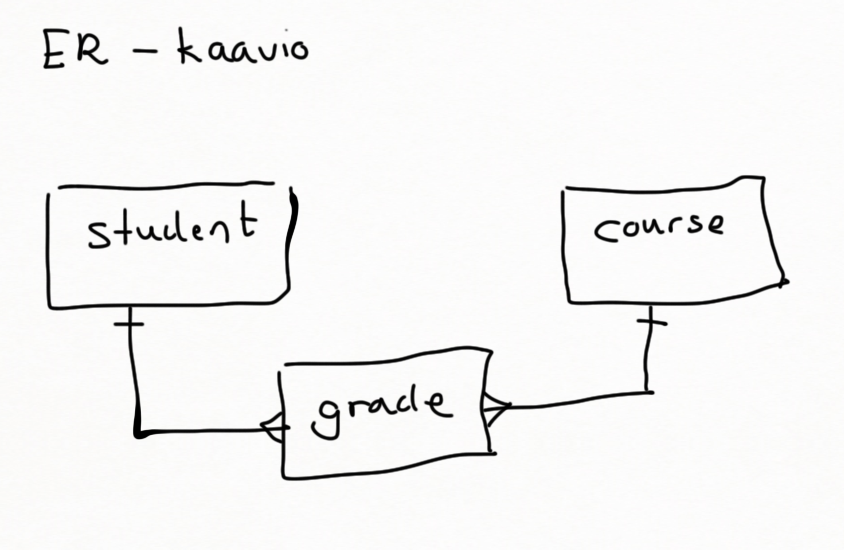 ER - kaavio
student
course
grade